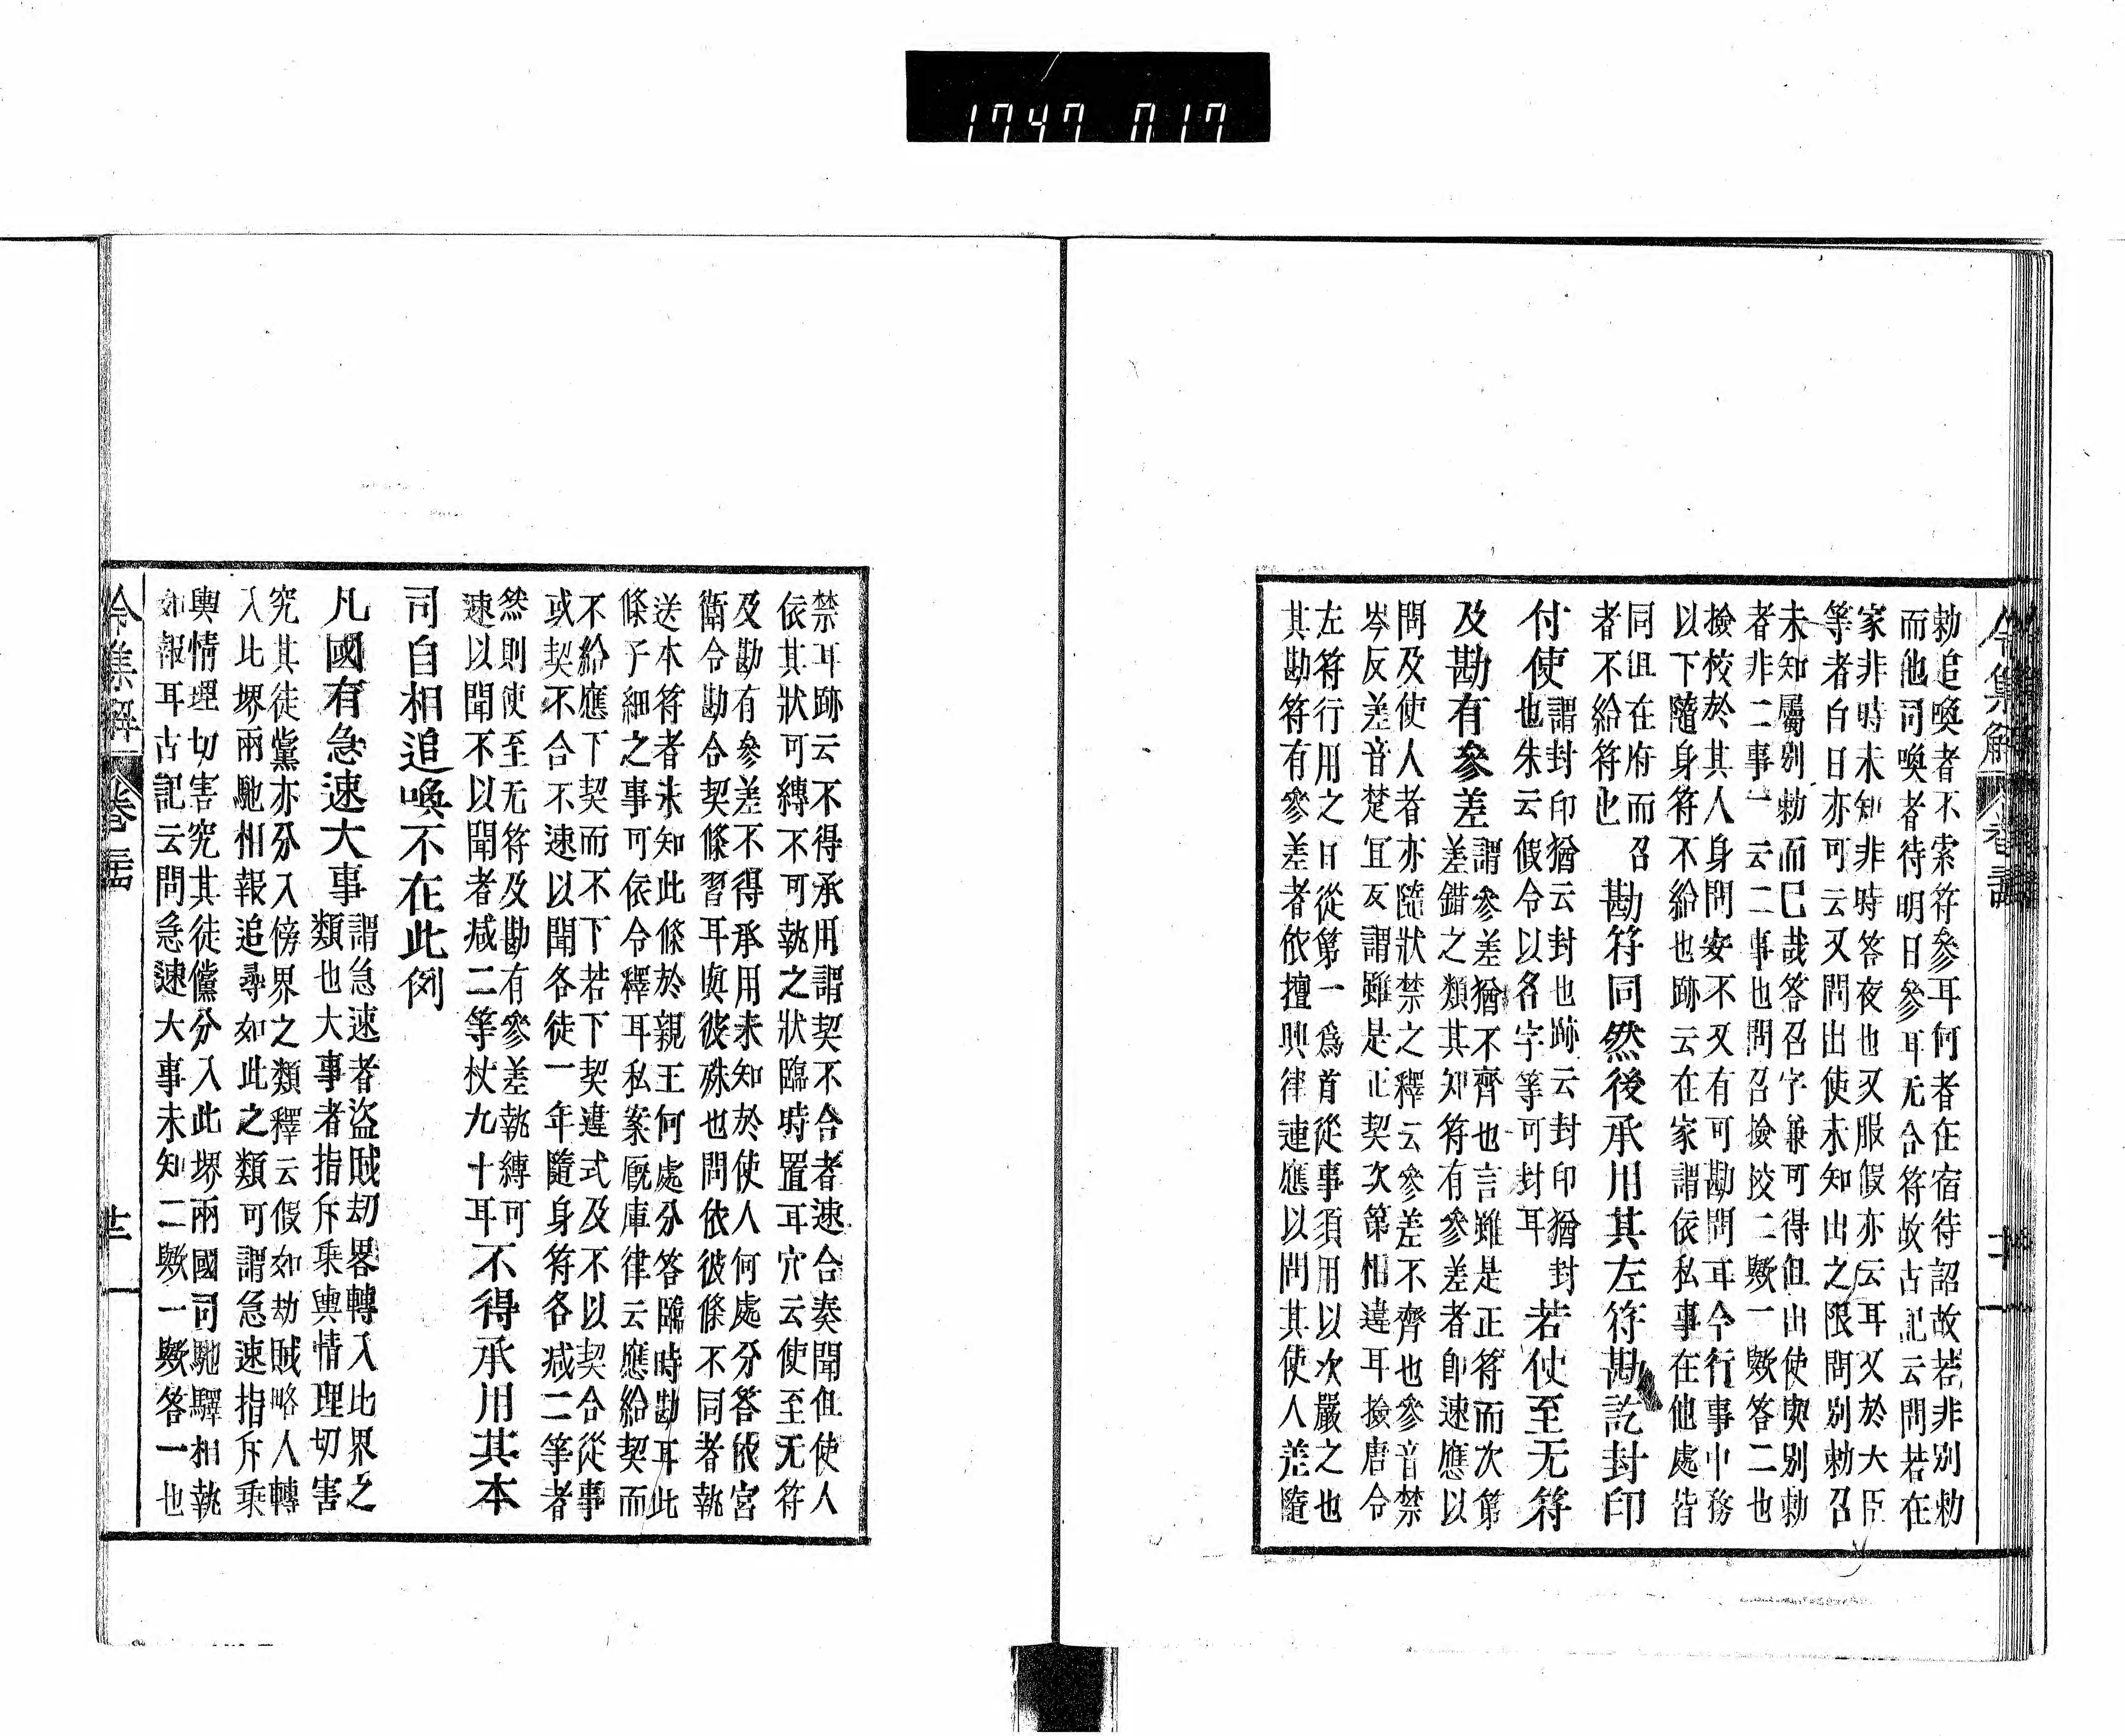 1747 017
令集解
勅追喚者不索符參耳何者在宿待詔故若非別勅
而他司喚者待明日參耳无合符故古記云問若在
家非時未知非時答夜也又服假亦云耳又於大臣
等者白日亦可云又問出使未知出之限問別勅召
未知屬別勅而已哉答召字兼可得但出使與別勅
者非二事一云二事也問召撿挍二歟一歟答二也
撿校於其人身問安不又有可勘問耳今行事中務
以下隨身符不給也跡云在家謂依私事在他處皆
同但在府而召
者不給符也
勘符同然後承用其左符勘訖封印
付使
謂封印猶云封也跡云封印猶封
也朱云假令以名字等可封耳
若使至无符
及勘有參差
謂參差猶不齊也言雖是正符而次第
差錯之類其知符有參差者即速應以
問及使人者亦隨狀禁之釋云參差不齊也參音禁
岑反差音楚宜反謂雖是正契次第相違耳撿唐令
左符行用之日從第一爲首從事須用以次嚴之也
其勘符有參差者依擅興律連應以問其使人差隨
禁耳跡云不得承用謂契不合者速合奏聞但使人
依其狀可縛不可執之狀臨時置耳穴云使至无符
及勘有參差不得承用未知於使人何處分答依宮
衛令勘合契條習耳與彼殊也問依彼條不同者執
送本符者未知此條於親王何處分答臨時勘耳此
條子細之事可依令釋耳私案厩庫律云應給契而
不給應下契而不下若下契違式及不以契合從事
或契不合不速以聞各徒一年隨身符各减二等者
然則使至无符及勘有參差執縛可
速以聞不以聞者减二等杖九十耳
不得承用其本
司自相追喚不在此例
凡國有急速大事
謂急速者盜賊刧畧轉入比界之
類也大事者指斥乘輿情理切害
究其徒黨亦分入傍界之類釋云假如劫賊略人轉
入比堺兩馳相報追尋如此之類可謂急速指斥乘
輿情理切害究其徒儻分入此堺兩國司馳驛相執
如報耳古記云問急速大事未知二歟一歟答一也
令集解